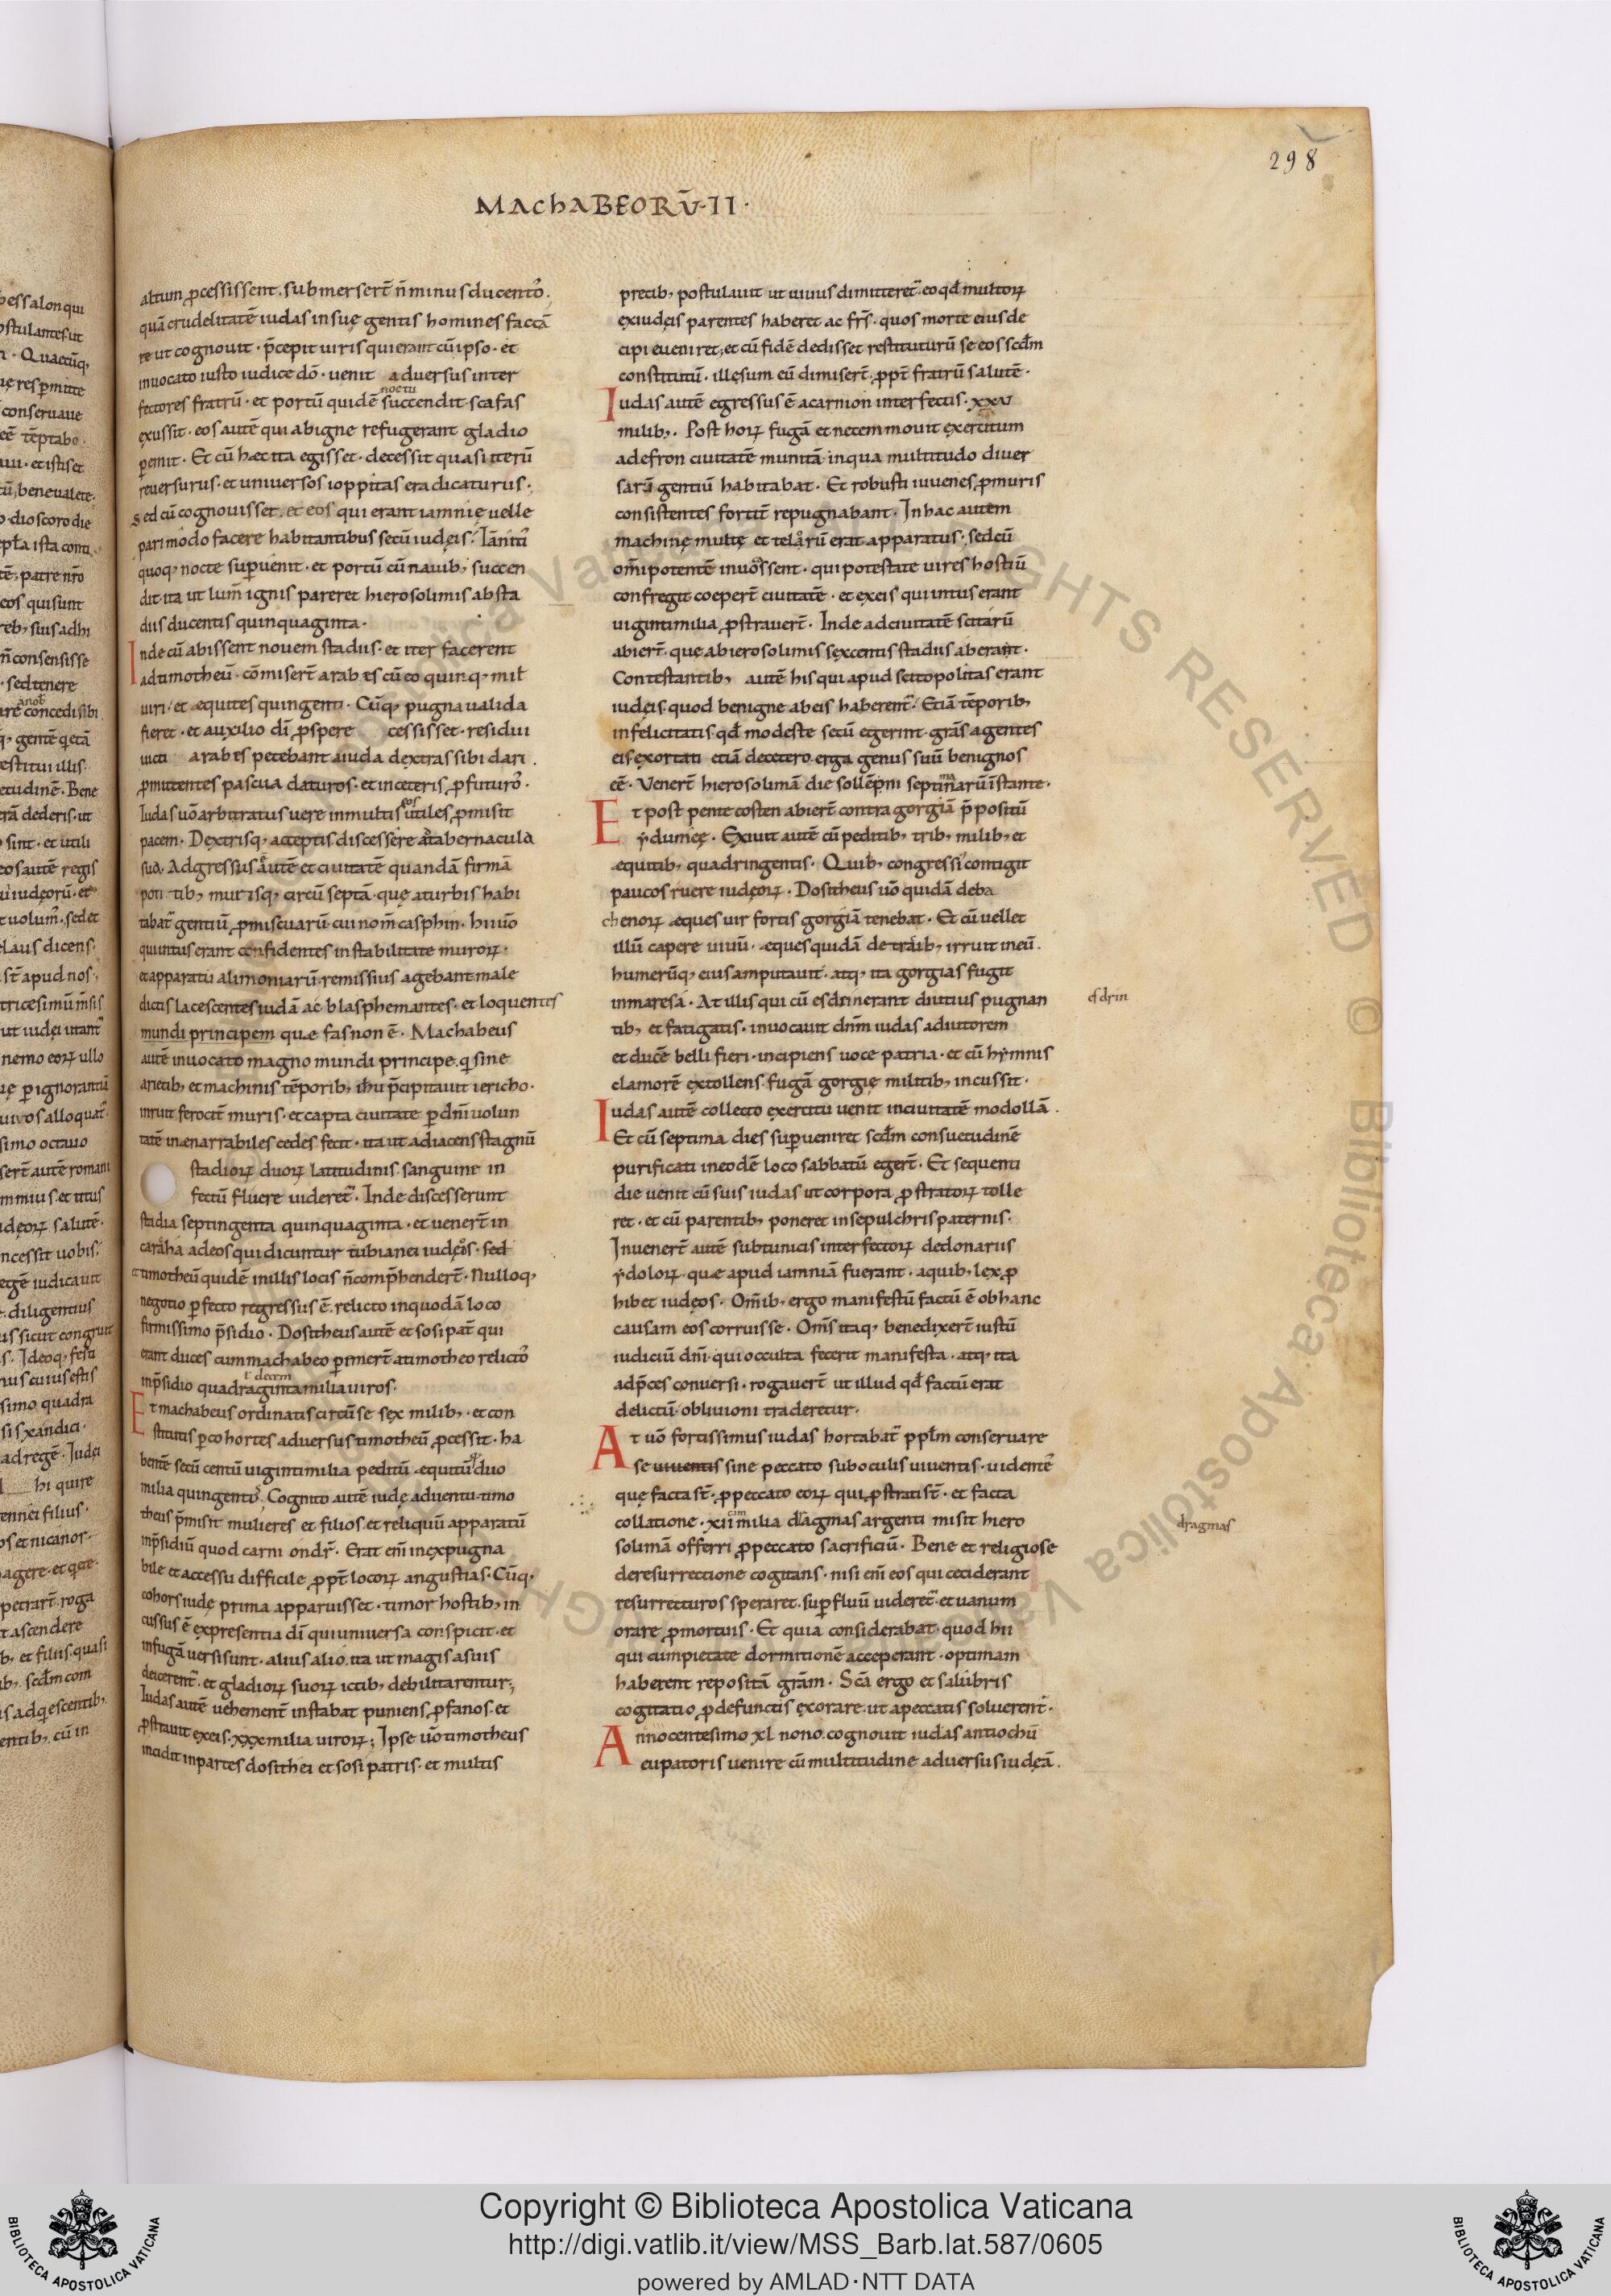 298
MAChABEORū·II·
altum ꝓcessissent. submersert̄ n̄ minus ducento᷒.
quā crudelitatē iudas in suę gentis homines factā
re ut cognouit · p̄cepit uiris qui erant cū ipso · et
inuocato iusto iudice dō · uenit aduersus inter
noctu
fectores fratrū · et portū quidē succendit · scafas
exussit · eos autē qui ab igne refugerant gladio
ꝑemit · Et cū hæc ita egisset · decessit quasi iterū
reuersurus · et uniuersos ioppitas eradicaturus ·
Sed cū cognouisset. et eos qui erant iamnię uelle
pari modo facere habitantibus secū iudęis · Iānitis
quoq; nocte suꝑuenit · et portū cū nauib; succen
dit ita ut lum̄ ignis pareret hierosolimis ab sta
diis ducentis quinquaginta ·
Inde cū abissent nouem stadiis · et iter facerent
ad timotheū · cōmisert̄ arabes cū eo quinq; mil
uiri · et equites quingenti · Cūq; pugna ualida
fieret · et auxilio dī ꝓspere cessisset · residui
uicti arabes petebant a iuda dextras sibi dari .
ꝓmittentes pascua daturos · et in ceteris ꝓfuturo᷒ ·
eos
Iudas uō arbitratus uere in multis utiles ꝓmisit
pacem · Dextrisq; acceptis discessere ad tabernacula
sua · Adgressus autē et ciuitatē quandā firmā
pontib; murisq; circūseptā · quę a turbis habi
tabat᷒ gentiū ꝓmiscuarū · cui nom̄ casphin · hi uō
qui intus erant confidentes in stabilitate muroꝝ ·
et apparatu alimoniarū · remissius agebant male
dictis lacescentes iudā ac blasphemantes · et loquentes
mundi principem quæ fas non ē · Machabeus
autē inuocato magno mundi principe. q̇ sine
arietib; et machinis tēporib; ih̄u p̄cipitauit iericho ·
inruit ferocit̄ muris · et capta ciuitate ꝑ dn̄i uolun
tatē inænarrabiles cedes fecit · ita ut adiacens stagnū
stadioꝝ duoꝝ latitudinis. sanguine in
fectū fluere uideret᷒ · Inde discesserunt
stadia septingenta quinquaginta · et uenert̄ in
caraha ad eos qui dicuntur tubianei iudęos · sed
timotheū quidē in illis locis n̄ comp̄hendert̄ · Nulloq;
negotio ꝑfecto regressus ē. relicto in quodā loco
firmissimo p̄sidio · Dositheus autē et sosipat̄ qui
erant duces cum machabeo ꝑimert̄ a timotheo relicto᷒
l' decem
in p̄sidio quadraginta milia uiros ·
Et machabeus ordinatis circū se sex milib; · et con
stitutis ꝑ cohortes aduersus timotheū ꝓcessit · ha
bentē secū centū uiginti milia peditū · equitūq; duo
milia quingento᷒ · Cognito autē iudę aduentu · timo
theus p̄misit mulieres et filios. et reliquū apparatū
in p̄sidiū quod carni ondr̄ · Erat eni᷒ inexpugna
bile et accessu difficile ꝓpt̄ locoꝝ angustias · Cūq;
cohors iudę prima apparuisset · timor hostib; in
cussus ē ex presentia dī qui uniuersa conspicit · et
in fugā uersi sunt · alius alio. ita ut magis a suis
deicerent᷒ · et gladioꝝ suoꝝ ictib; debilitarentur;
Iudas autē uehement̄ instabat puniens ꝓfanos · et
ꝓstrauit ex eis · xxx milia uiroꝝ; Ipse uō timotheus
incidit in partes dosithei et sosipatris · et multis
precib; postulauit ut uiuus dimitteret᷒ · eo qđ multoꝝ
ex iudęis parentes haberet ac fr̄s · quos morte eius de
cipi eueniret; et cū fidē dedisset restituturū se eos scđm
constitutū · illesum eū dimisert̄ · ꝓpt̄ fratrū salutē ·
Iudas autē egressus ē a carnion interfectis · xxv
milib; · Post hoꝝ fugā et necem mouit exercitum
ad efron ciuitatē munitā · in qua multitudo diuer
sarū gentiū habitabat · Et robusti iuuenes ꝓ muris
consistentes fortit̄ repugnabant · In hac autem
machinę multę et teloꝝ erat apparatus · sed cū
om̄ipotentē inuocassent · qui potestate uires hostiū
confregit coepert̄ ciuitatē · et ex eis qui intus erant
uiginti milia ꝓstrauert̄ · Inde ad ciuitatē scitarū
abiert̄ · que ab ierosolimis sexcentis stadiis aberant ·
Contestantib; autē his qui apud scitopolitas erant
iudęis · quod benigne ab eis haberent᷒ · Etiā tēporib;
infelicitatis · qđ modeste secū egerint · gr̄as agentes
eis · exortati etiā de cetero erga genus suū benignos
eē · Venert̄ hierosolimā die sollēpni septimanarū īstante ·
Et post pentecosten abiert̄ contra gorgiā p̄positū
ydumeę · Exiuit autē cū peditib; trib; milib; et
equitib; quadringentis · Quib; congressis contigit
paucos ruere iudęoꝝ · Dositheus uō quidā de ba
chenoꝝ æques uir fortis gorgiā tenebat · Et cū uellet
illū capere uiuū · æques quidā de tracib; irruit in eū ·
humerūq; eius amputauit · atq; ita gorgias fugit
in maresa · At illis qui cū esdrin erant diutius pugnan
esdrin
tib; et fatigatis · inuocauit dn̄m iudas adiutorem
et ducē belli fieri · incipiens uoce patria · et cū hymnis
clamorē extollens fugā gorgię militib; incussit ·
Iudas autē collecto exercitu uenit in ciuitatē modollā .
Et cū septima dies suꝑueniret scđm consuetudinē
purificati in eodē loco sabbatū egert̄ · Et sequenti
die uenit cū suis iudas ut corpora ꝓstratoꝝ tolle
ret · et cū parentib; poneret in sepulchris paternis ·
Inuenert̄ autē sub tunicis interfectoꝝ de donariis
ydoloꝝ · quæ apud iamniā fuerant · a quib; lex ꝓ
hibet iudęos · Om̄ib; ergo manifestū factū ē ob hanc
causam eos corruisse · Om̄s itaq; benedixert̄ iustū
iudiciū dn̄i · qui occulta fecerit manifesta · atq; ita
ad p̄ces conuersi · rogauert̄ ut illud qđ factū erat
delictū · obliuioni traderetur ·
At uō fortissimus iudas hortabat᷒ ppłm conseruare
se uiuentis sine peccato sub oculis uiuentis · uidente᷒
quę facta st̄ · ꝓ peccato eoꝝ qui ꝓstrati st̄ · et facta
collatione · xii milia dragmas argenti misit hiero
dragmas
solimā offerri ꝓ peccato sacrificiū · Bene et religiose
de resurrectione cogitans · nisi eni᷒ eos qui ceciderant
resurrecturos speraret · suꝑfluū uideret᷒ · et uanum
orare ꝓ mortuis · Et quia considerabat · quod hii
qui cum pietate dormitionē acceperant · optimam
haberent repositā gr̄am · Scā ergo et salubris
cogitatio ꝓ defunctis exorare · ut a peccatis soluerent᷒ ·
Anno centesimo xl nono. cognouit iudas antiochū
eupatoris uenire cū multitudine aduersus iudęā .
Copyright © Biblioteca Apostolica Vaticana
http://digi.vatlib.it/view/MSS_Barb.lat.587/0605
powered by AMLAD·NTT DATA
BIBLIOTECA APOSTOLICA VATICANA
BIBLIOTECA APOSTOLICA VATICANA